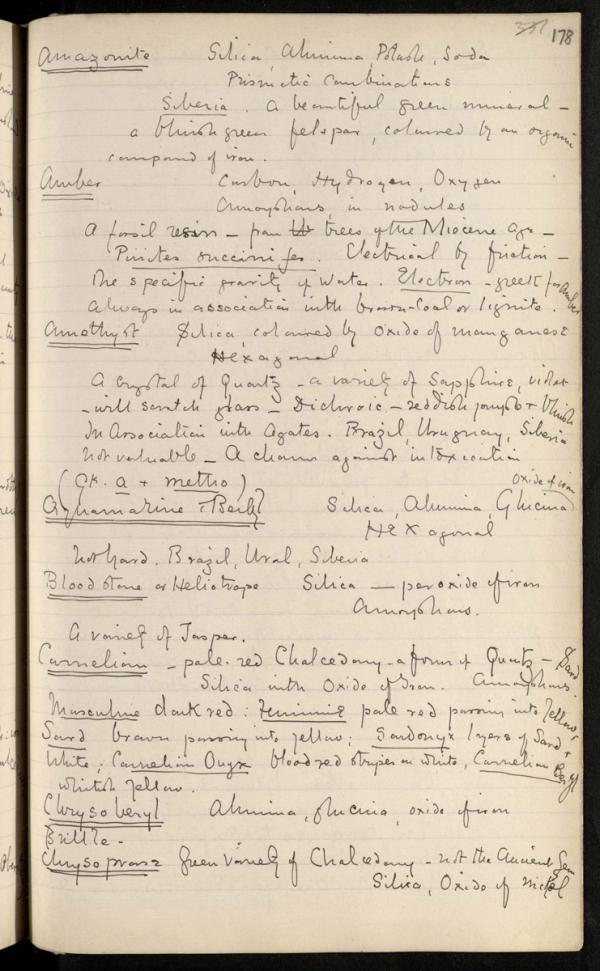 351 178
Amazonite Silica, Alumina, Potash, Soda
Prismatic Combinations
Siberia. A beautiful green mineral –
a bluish green felspar, coloured by an organic
compound of iron.
Amber Carbon, Hydrogen, Oxygen
Amorphous, in nodules
A fossil resin – from trees of the Miocene Age –
Pinites succinifer. Electrical by friction –
The specific gravity of water. Electron – greek for Amber
Always in association with brown-coal or lignite.
Amethyst Silica, coloured by Oxide of manganese
Hexagonal
A Crystal of Quartz – a variety of Sapphire, violet
– will scratch glass – Dichroic – reddish purple + bluish
In Association with Agates. Brazil, Uruguay, Siberia
Not valuable – A charm against intoxication
(Gk. a + metho)
Oxide of iron
Aquamarine = Beryl Silica, Alumina, Glucina
Hexagonal
Not hard. Brazil, Ural, Siberia
Blood stone or Heliotrope Silica – peroxide of iron
Amorphous.
A variety of Jasper.
Carnelian – pale-red Chalcedony – a form of Quartz – Sard
Silica with Oxide of Iron. Amorphous.
Masculine dark red: Feminine pale red passing into Yellow
Sard brown passing into yellow; Sardonyx layers of Sard +
White; Carnelian Onyx blood red stripes on white, Carnelian Beryl
whitish yellow.
Chrysoberyl Alumina, glucina, oxide of iron
Brittle –
Chrysoprase Green variety of Chalcedony – not the Ancient Gem
Silica, Oxide of nickel